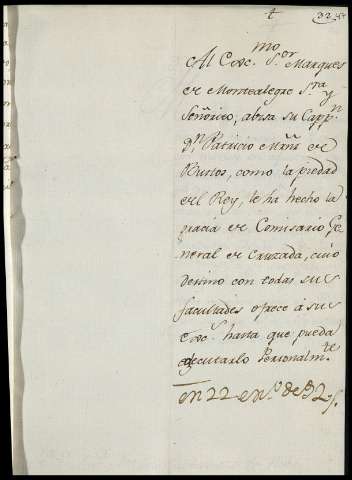 Al Exc.mo S.or Marques
de Montealegre S.ra y
Señorito, abisa su Capp.n
D.n Patricio Mrñ de
Bustos, como la piedad
del Rey, le ha hecho la
gracia de Comisario Ge
neral de Cruzada, cuio
destino con todas sus
facultades ofrece á sus
Exc.s hasta que pueda
egecutarlo Personalm.te
en 22 en.o de 92